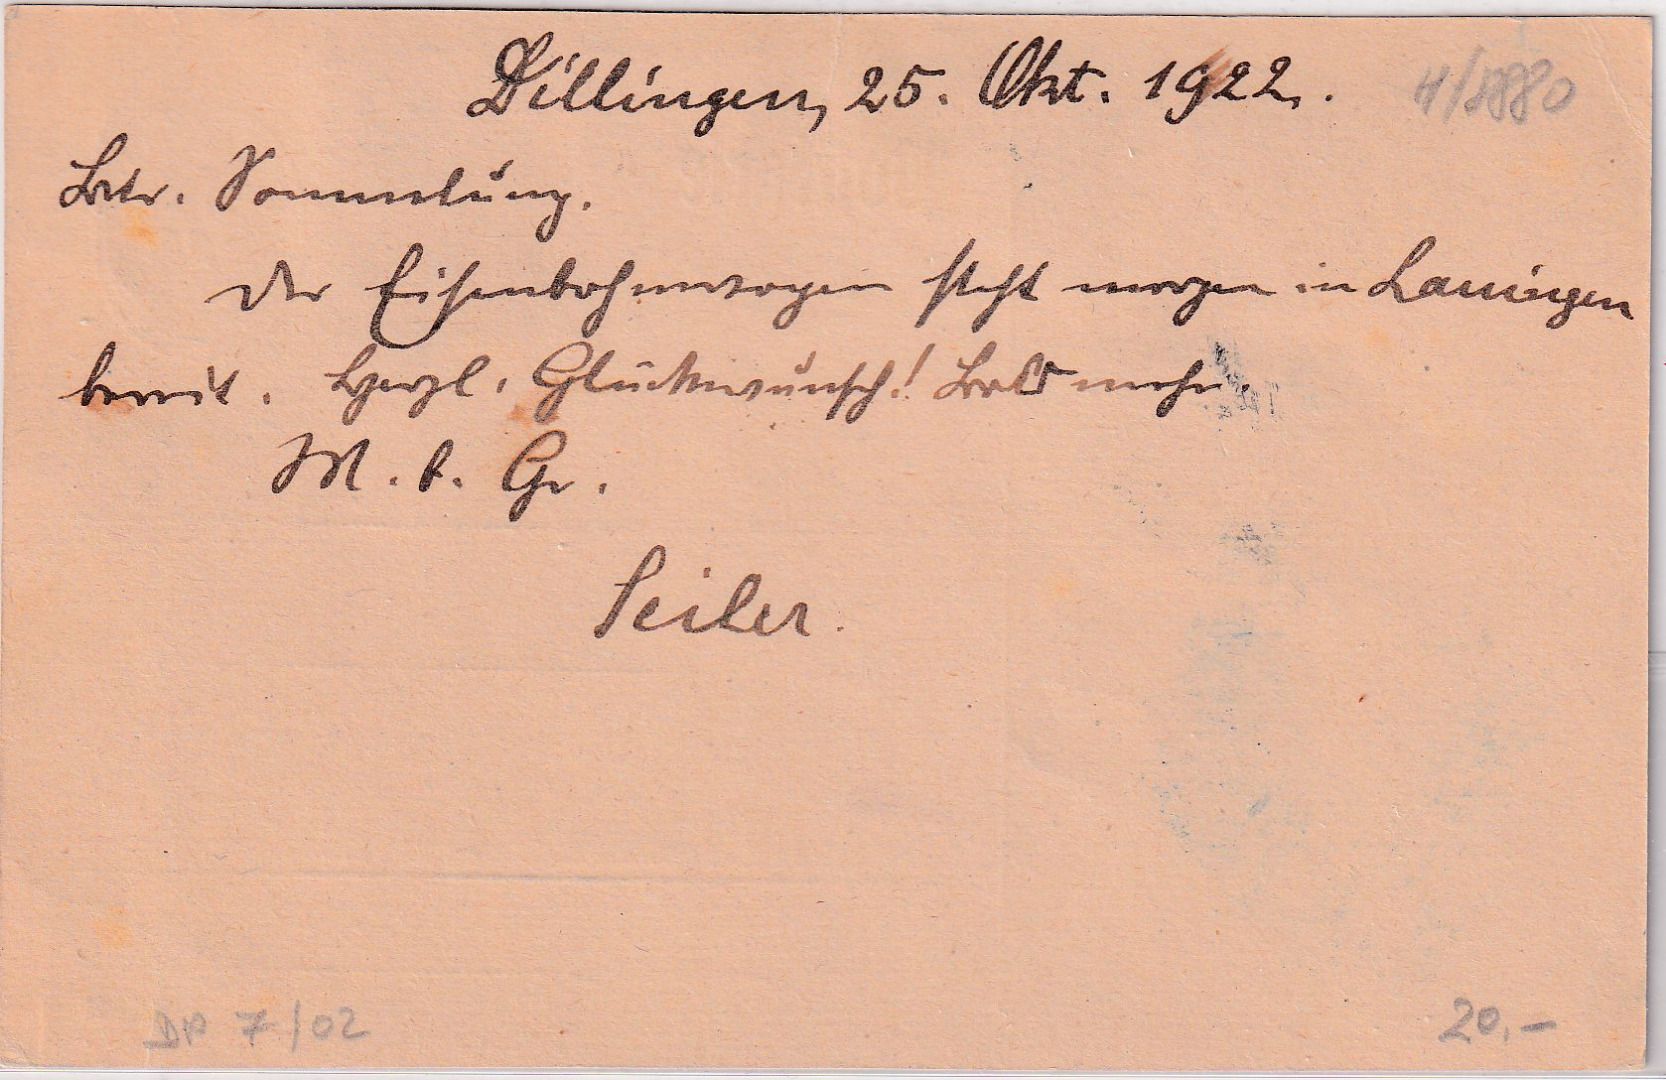 Dillingen, 25. Okt. 1922.
Betr. Sammlung.
Der Eisenbahnwagen steht morgen in Lauingen
bereit. Herzl. Glückwunsch! Bald mehr.
M. b. Gr.
Seiler.
DP 7/02
20,-